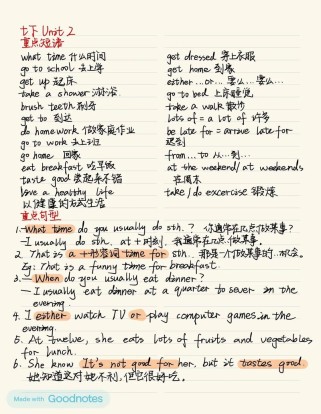 七下 Unit 2
重点短语
what time 什么时间
go to school 去上学
get up 起床
take a shower 淋浴
brush teeth 刷牙
get to 到达
do homework 做家庭作业
go to work 去上班
go home 回家
eat breakfast 吃早饭
taste good 尝起来不错
live a healthy life
以健康的方式生活
get dressed 穿上衣服
get home 到家
either...or... 要么...要么...
go to bed 上床睡觉
take a walk 散步
lots of = a lot of 许多
be late for = arrive late for
迟到
from...to 从...到...
at the weekend/at weekends
在周末
take/do excercise 锻炼
重点句型
1. —What time do you usually do sth.? 你通常在几点做某事?
—I usually do sth. at + 时刻. 我通常在几点做某事.
2. That is a + 形容词 time for sth. 那是一个做某事的...时间.
Eg: That is a funny time for breakfast.
3. —When do you usually eat dinner?
—I usually eat dinner at a quarter to seven in the
evening.
4. I either watch TV or play computer games in the
evening.
5. At twelve, she eats lots of fruits and vegetables
for lunch.
6. She know It's not good for her, but it tastes good.
她知道这对她不利,但它很好吃.
Made with Goodnotes